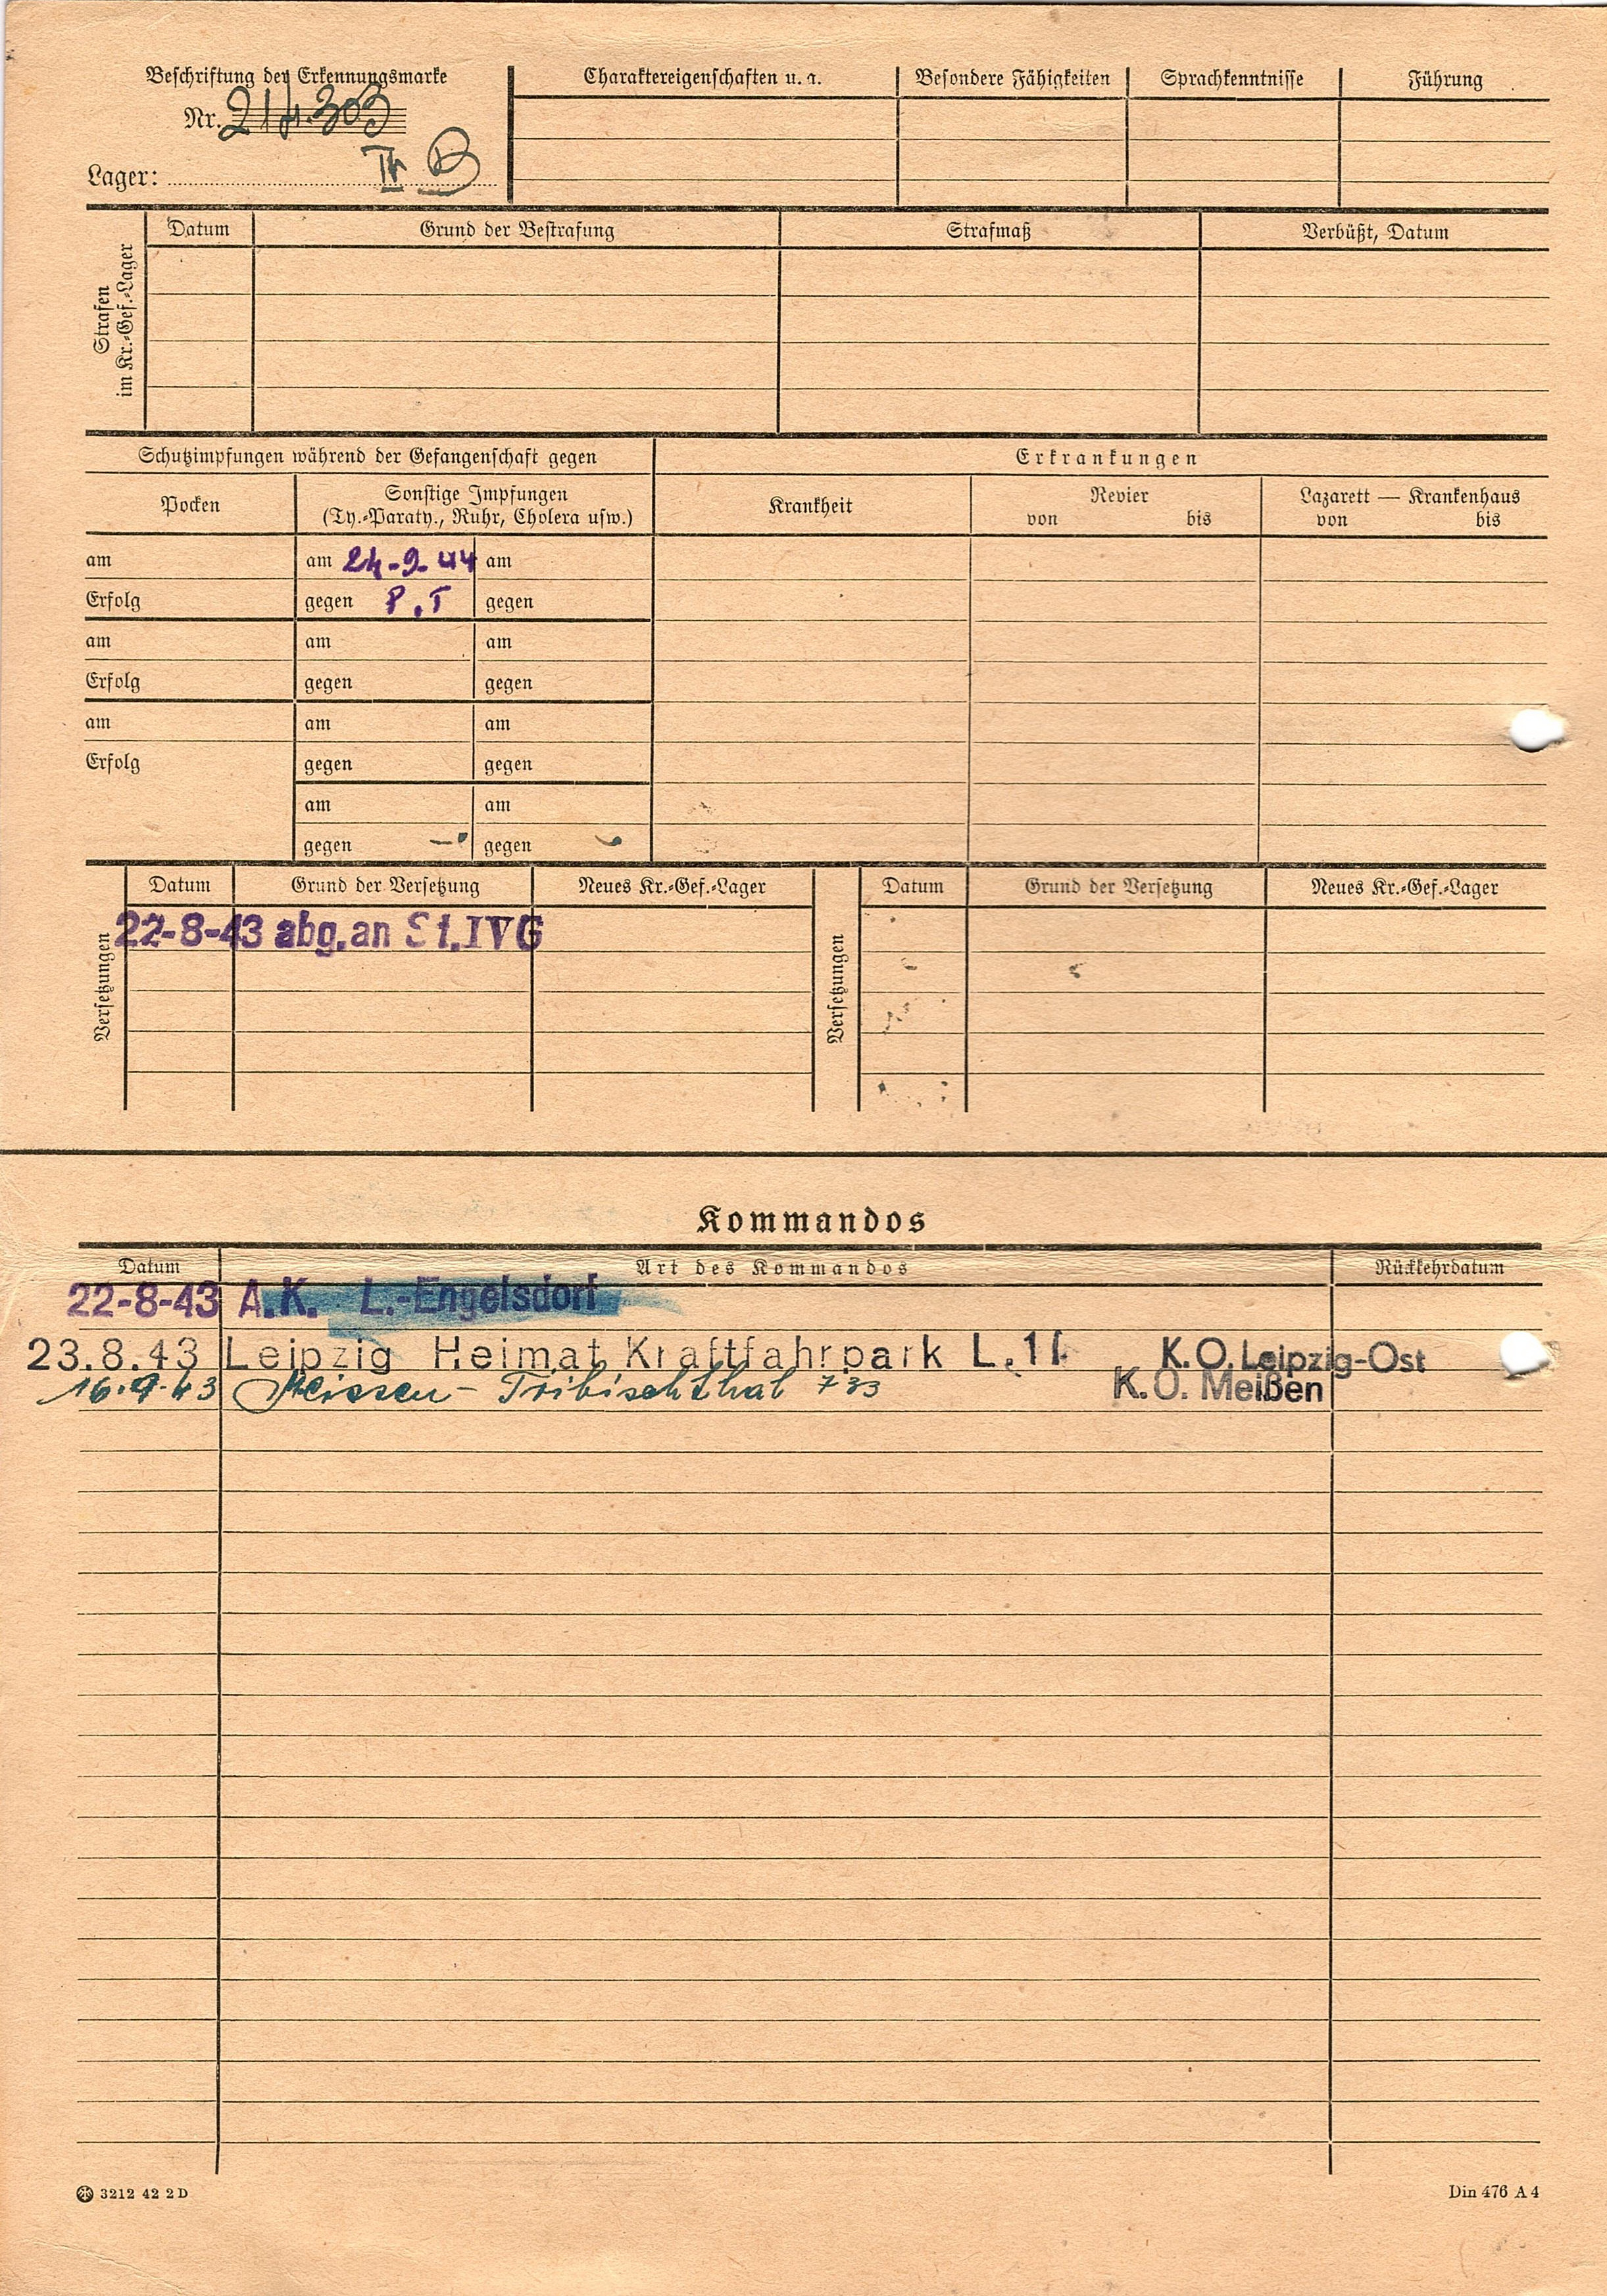 Beschriftung der Erkennungsmarke
Nr. 214.303
Lager: IV B
Charaktereigenschaften u. a. Besondere Fähigkeiten Sprachkenntnisse Führung
Strafen
im Kr.-Gef.-Lager
Datum Grund der Bestrafung Strafmaß Verbüßt, Datum
Schutzimpfungen während der Gefangenschaft gegen Erkrankungen
Pocken Sonstige Impfungen
(Ty.-Paraty., Ruhr, Cholera usw.)
Krankheit Revier Lazarett — Krankenhaus
von bis von bis
am am 24-9-44 am
Erfolg gegen P.T gegen
am am am
Erfolg gegen gegen
am am am
Erfolg gegen gegen
am am
gegen gegen
Versetzungen
Datum Grund der Versetzung Neues Kr.-Gef.-Lager
22-8-43 abg. an St. IVG
Versetzungen
Datum Grund der Versetzung Neues Kr.-Gef.-Lager
Kommandos
Datum Art des Kommandos Rückkehrdatum
22-8-43 A.K. L.-Engelsdorf
23.8.43 Leipzig Heimat Kraftfahrpark L. 11 K.O. Leipzig-Ost
16.9.43 Meissen - Tribischthal 733 K.O. Meißen
3212 42 2 D
Din 476 A 4